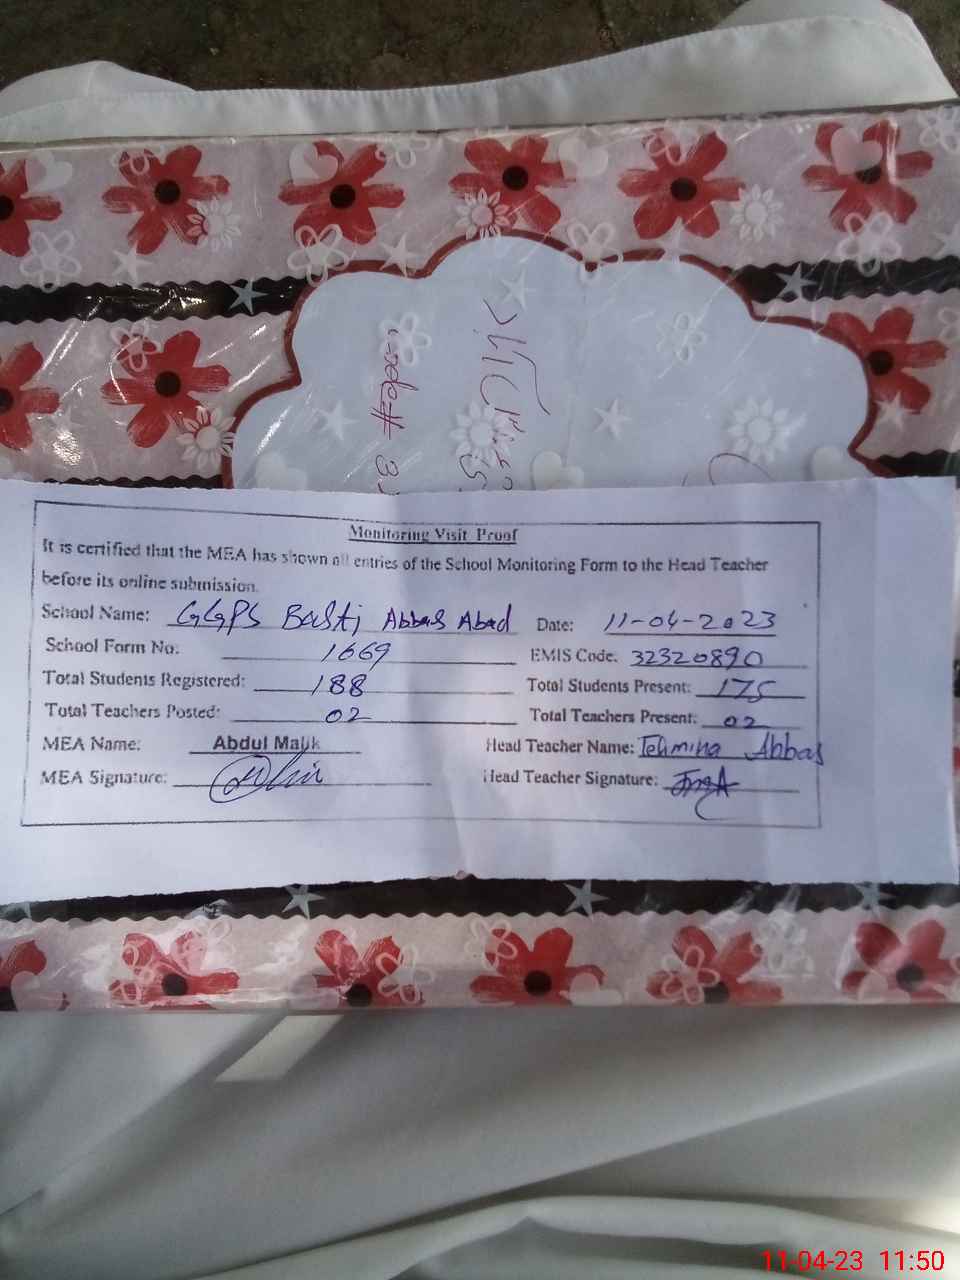 Monitoring Visit Proof
It is certified that the MEA has shown all entries of the School Monitoring Form to the Head Teacher
before its online submission.
School Name: GGPS Basti Abbas Abad Date: 11-04-2023
School Form No: 1669 EMIS Code: 32320890
Total Students Registered: 188 Total Students Present: 175
Total Teachers Posted: 02 Total Teachers Present: 02
MEA Name: Abdul Malik Head Teacher Name: Tehmina Abbas
MEA Signature: Head Teacher Signature:
11-04-23 11:50